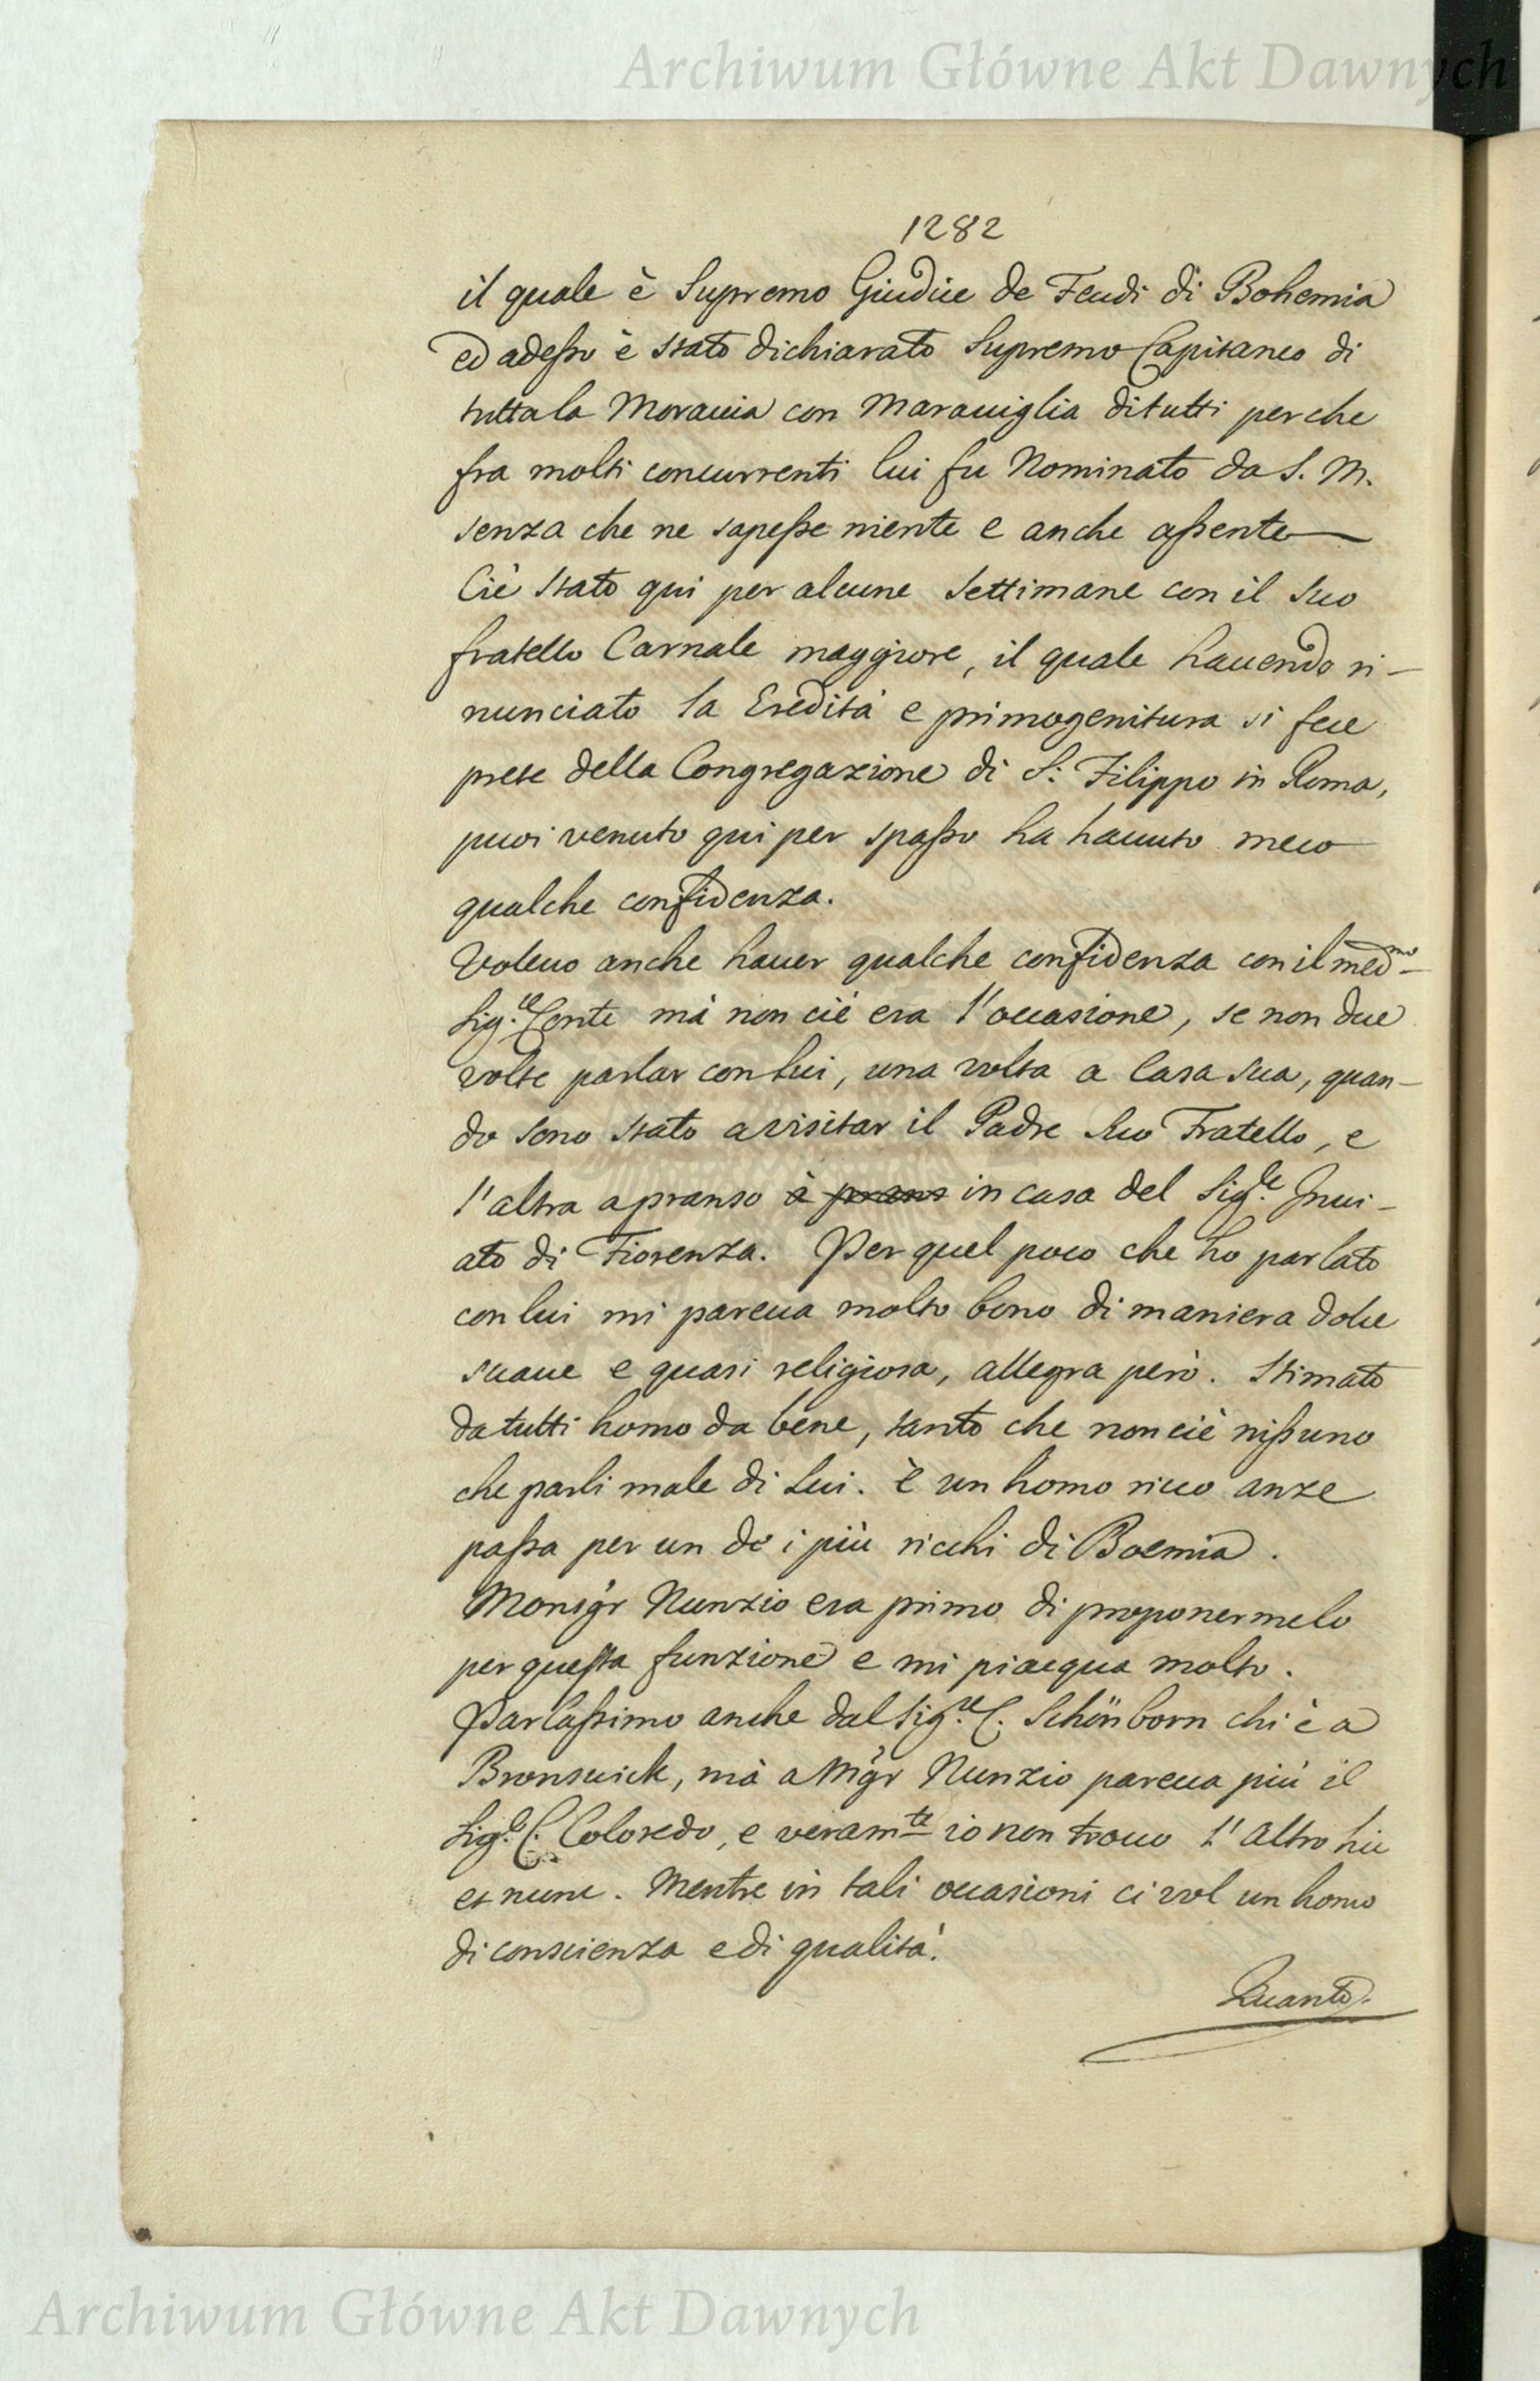 Archiwum Główne Akt Dawnych
1282
il quale è Supremo Giudice de Feudi di Bohemia
ed adesso è stato dichiarato Supremo Capitaneo di
tutta la Moravia con Maraviglia di tutti perche
fra molti concurrenti lui fu Nominato da S. M.
senza che ne sapesse niente e anche assente
Ciè stato qui per alcune Settimane con il suo
fratello Carnale maggiore, il quale hauendo ri-
nunciato la Eredità e primogenitura si fece
prete della Congregazione di S: Filippo in Roma,
puoi venuto qui per spasso ha hauuto meco
qualche confidenza.
Voleuo anche hauer qualche confidenza con il medmo
Sig.re Conte mà non ciè era l'occasione, se non due
volte parlar con lui, una volta a Casa sua, quan-
do sono stato a visitar il Padre suo Fratello, e
l'altra a pranso à prans in casa del Sig.re Inui-
ato di Fiorenza. Per quel poco che ho parlato
con lui mi pareua molto bono di maniera dolce
suaue e quasi religiosa, allegra però. Stimato
da tutti homo da bene, tanto che non ciè nissuno
che parli male di Lui. è un homo ricco anze
passa per un de i più ricchi di Boemia.
Monsigr Nunzio era primo di proponermelo
per questa funzione e mi piacqua molto.
Parlassimo anche dal Sig.re C. Schönborn chi è a
Bronswick, mà a Mgr Nunzio pareua più il
Sig.e C. Coloredo, e veramte io non trouo l'Altro hic
et nunc. Mentre in tali occasioni ci vol un homo
di conscienza e di qualità.
Quanto.
Archiwum Główne Akt Dawnych